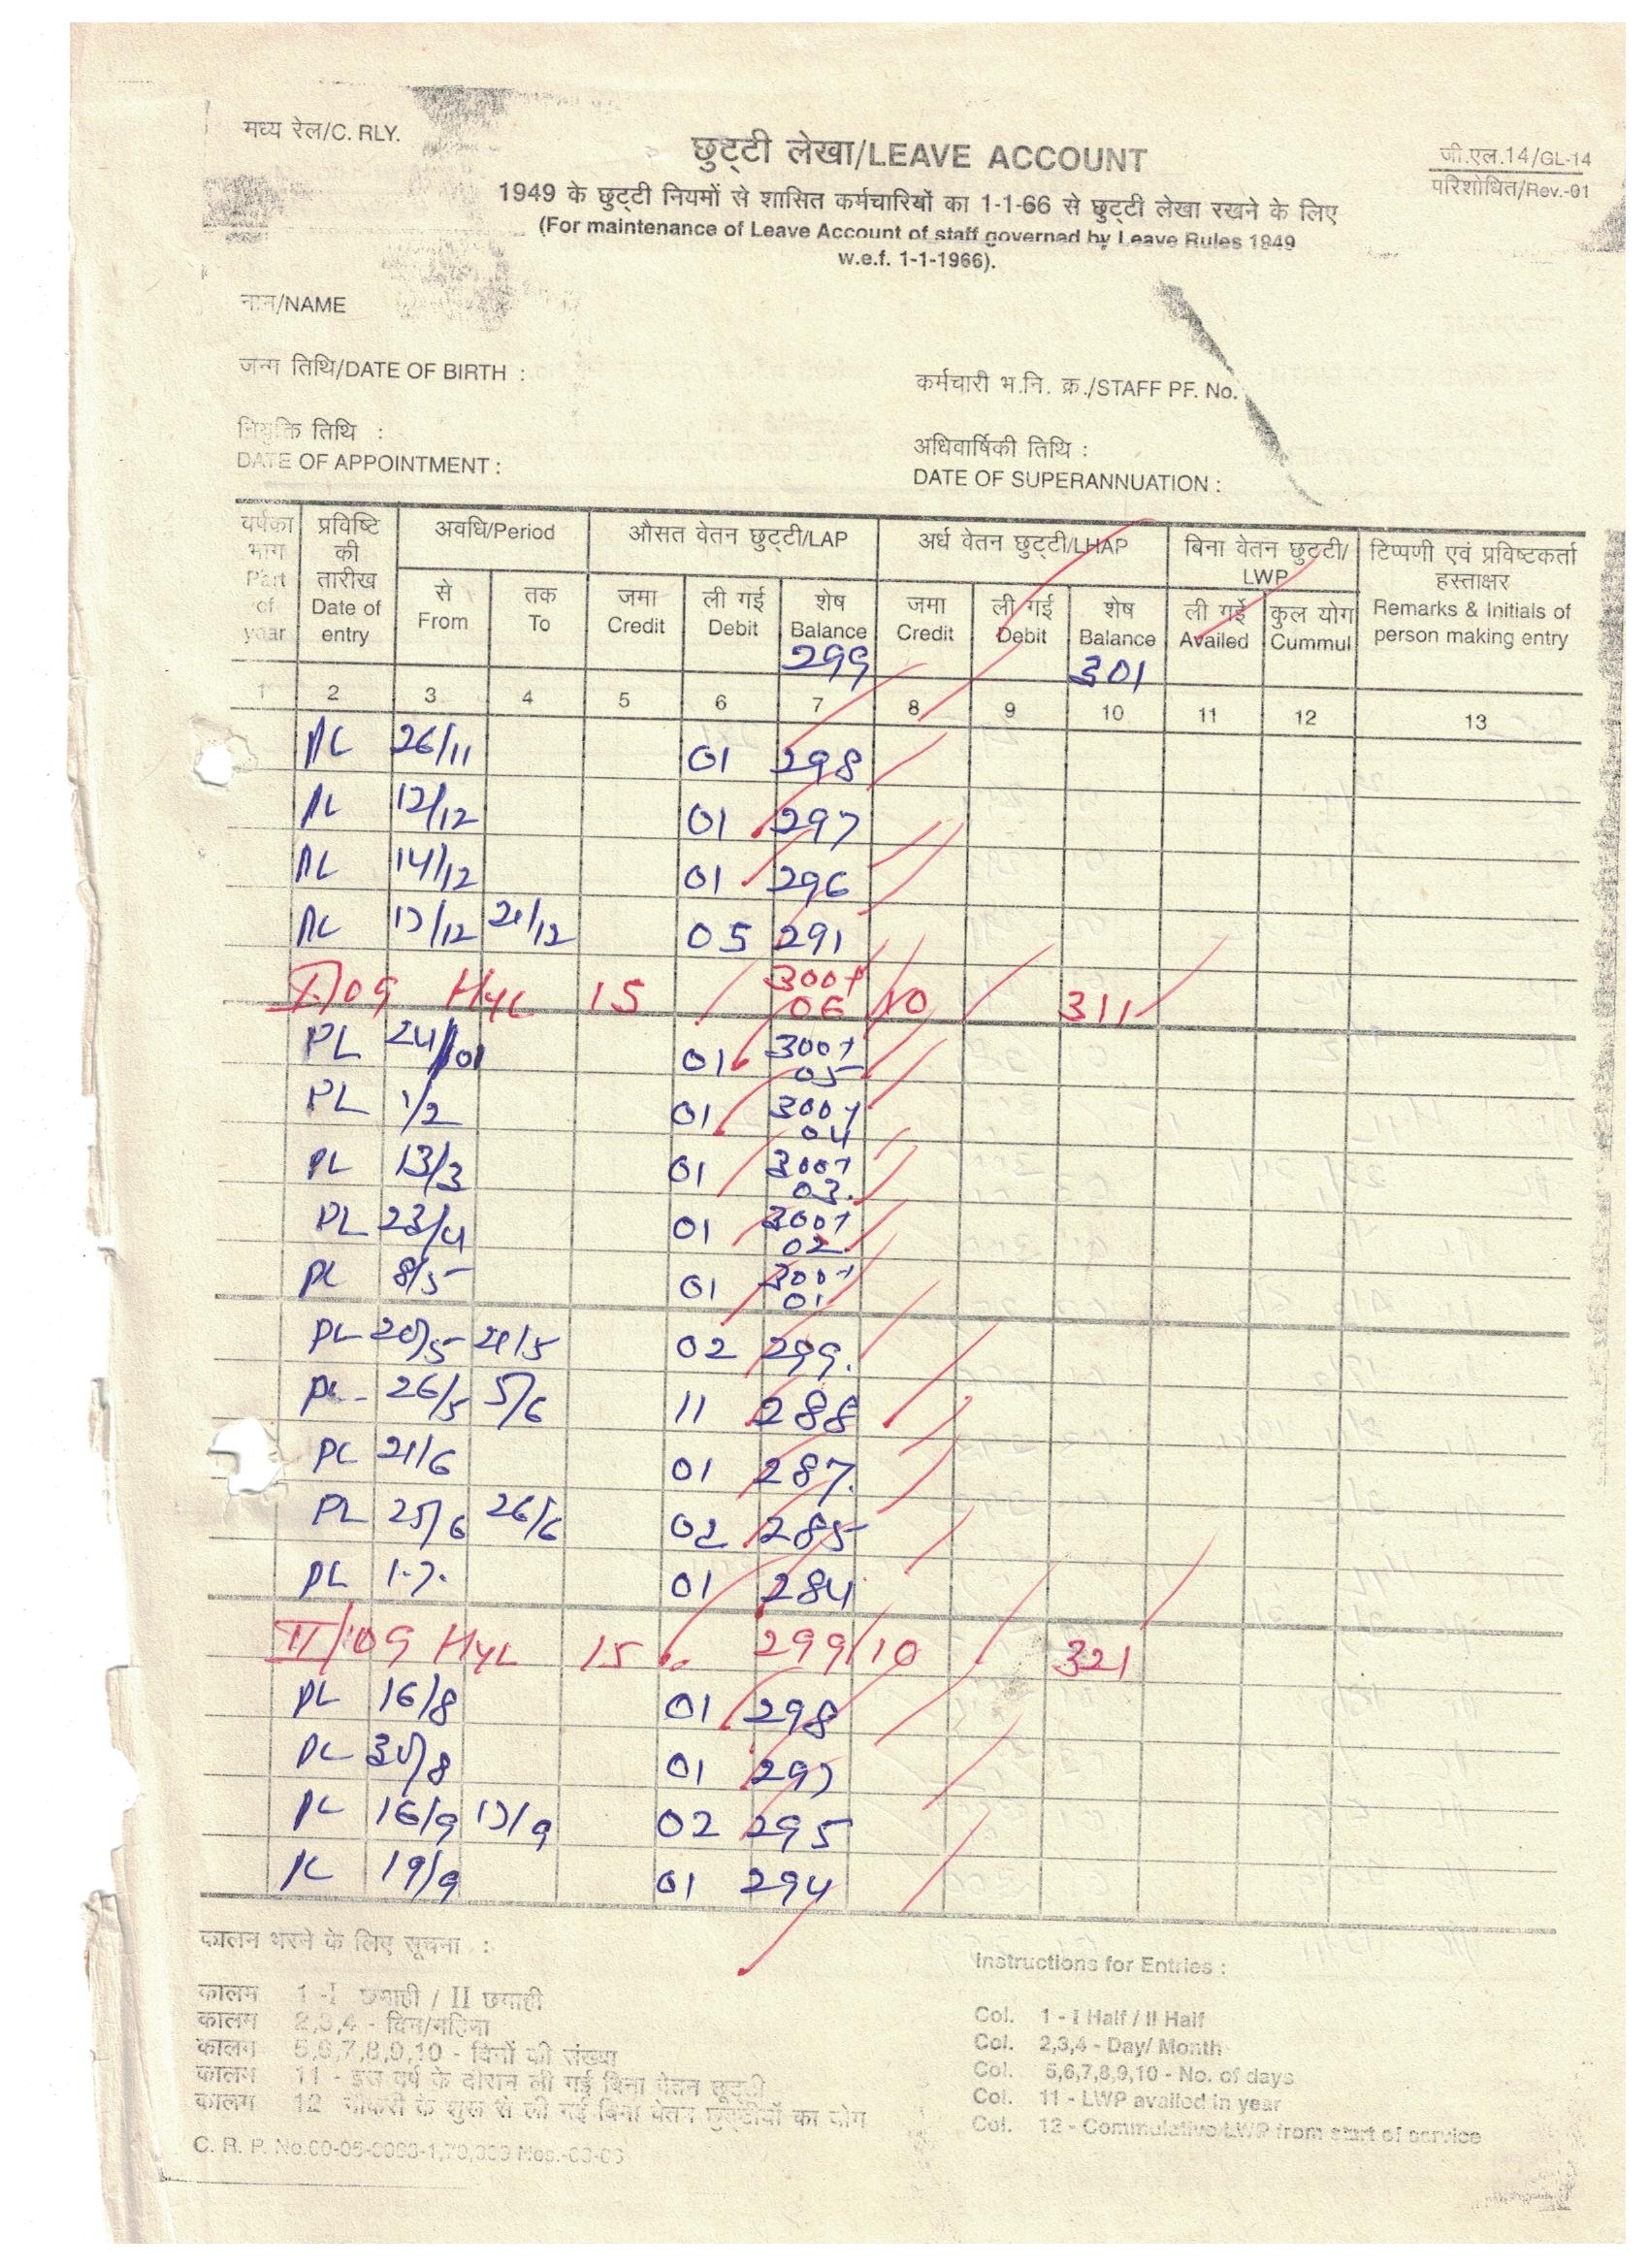 मध्य रेल/C. RLY.
छुट्टी लेखा/LEAVE ACCOUNT
जी.एल.14/GL-14
परिशोधित/Rev.-01
1949 के छुट्टी नियमों से शासित कर्मचारियों का 1-1-66 से छुट्टी लेखा रखने के लिए
(For maintenance of Leave Account of staff governed by Leave Rules 1949
w.e.f. 1-1-1966).
नाम/NAME
जन्म तिथि/DATE OF BIRTH :
कर्मचारी भ.नि. क्र./STAFF PF. No.
नियुक्ति तिथि :
DATE OF APPOINTMENT :
अधिवार्षिकी तिथि :
DATE OF SUPERANNUATION :
वर्षका भाग Part of year
प्रविष्टि की तारीख Date of entry
अवधि/Period
औसत वेतन छुट्टी/LAP
अर्ध वेतन छुट्टी/LHAP
बिना वेतन छुट्टी/LWP
टिप्पणी एवं प्रविष्टकर्ता हस्ताक्षर Remarks & Initials of person making entry
से From
तक To
जमा Credit
ली गई Debit
शेष Balance 299
जमा Credit
ली गई Debit
शेष Balance 301
ली गई Availed
कुल योग Cummul
1 2 3 4 5 6 7 8 9 10 11 12 13
PL 26/11 01 298
PL 12/12 01 297
PL 14/12 01 296
PL 17/12 21/12 05 291
I/09 HYL 15 300+06 10 311
PL 24/01 01 300+05
PL 1/2 01 300+04
PL 13/3 01 300+03.
PL 23/4 01 300+02
PL 8/5 01 300+01
PL 20/5 21/5 02 299.
PL 26/5 5/6 11 288
PL 21/6 01 287.
PL 25/6 26/6 02 285
PL 1.7. 01 284
II/09 HYL 15 299 10 321
PL 16/8 01 298
PL 30/8 01 297
PL 16/9 17/9 02 295
PL 19/9 01 294
कालम भरने के लिए सूचना :
कालम 1 -I छमाही / II छमाही
कालम 2,3,4 - दिन/महिना
कालम 5,6,7,8,9,10 - दिनों की संख्या
कालम 11 - इस वर्ष के दौरान ली गई बिना वेतन छुट्टी
कालम 12 नौकरी के शुरू से ली गई बिना वेतन छुट्टीयों का योग
Instructions for Entries :
Col. 1 - I Half / II Half
Col. 2,3,4 - Day/ Month
Col. 5,6,7,8,9,10 - No. of days
Col. 11 - LWP availed in year
Col. 12 - Commulative LWP from start of service
C. R. P. No.